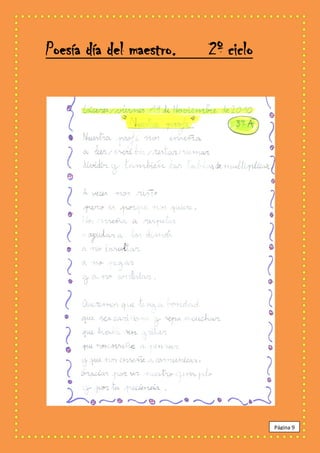 Poesía día del maestro. 2º ciclo
Cáceres, viernes 19 de Noviembre de 2010
"Nuestra profe" 3º A
Nuestra profe nos enseña
a leer, escribir, restar, sumar
dividir y también las tablas de multiplicar
A veces nos riñe
pero es porque nos quiere.
Nos enseña a respetar
a ayudar a los demás
a no insultar
a no pegar
y a no
Queremos que tenga bondad
que sea cariñosa y sepa escuchar
que nos enseñe a pensar
y que nos enseñe a
Gracias por ser nuestro ejemplo
y por tu paciencia.
Página 9